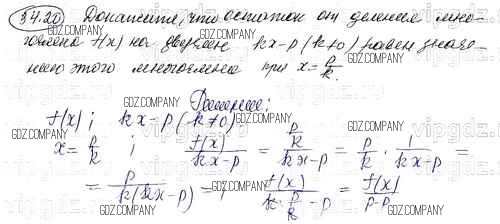 34.20) Докажите, что остаток от деления мно-
гочлена f(x) на двучлен kx-p (k≠0) равен значе-
нию этого многочлена при x = p/k.
GDZ.COMPANY GDZ.COMPANY GDZ.COMPANY
Решение:
f(x); kx-p (k≠0)
x = p/k ; f(x)/(kx-p) = (p/k)/(kx-p) = p/k · 1/(kx-p) =
= p/(k(kx-p)) = f(x)/(k·p/k - p) = f(x)/(p-p)
GDZ.COMPANY GDZ.COMPANY GDZ.COMPANY